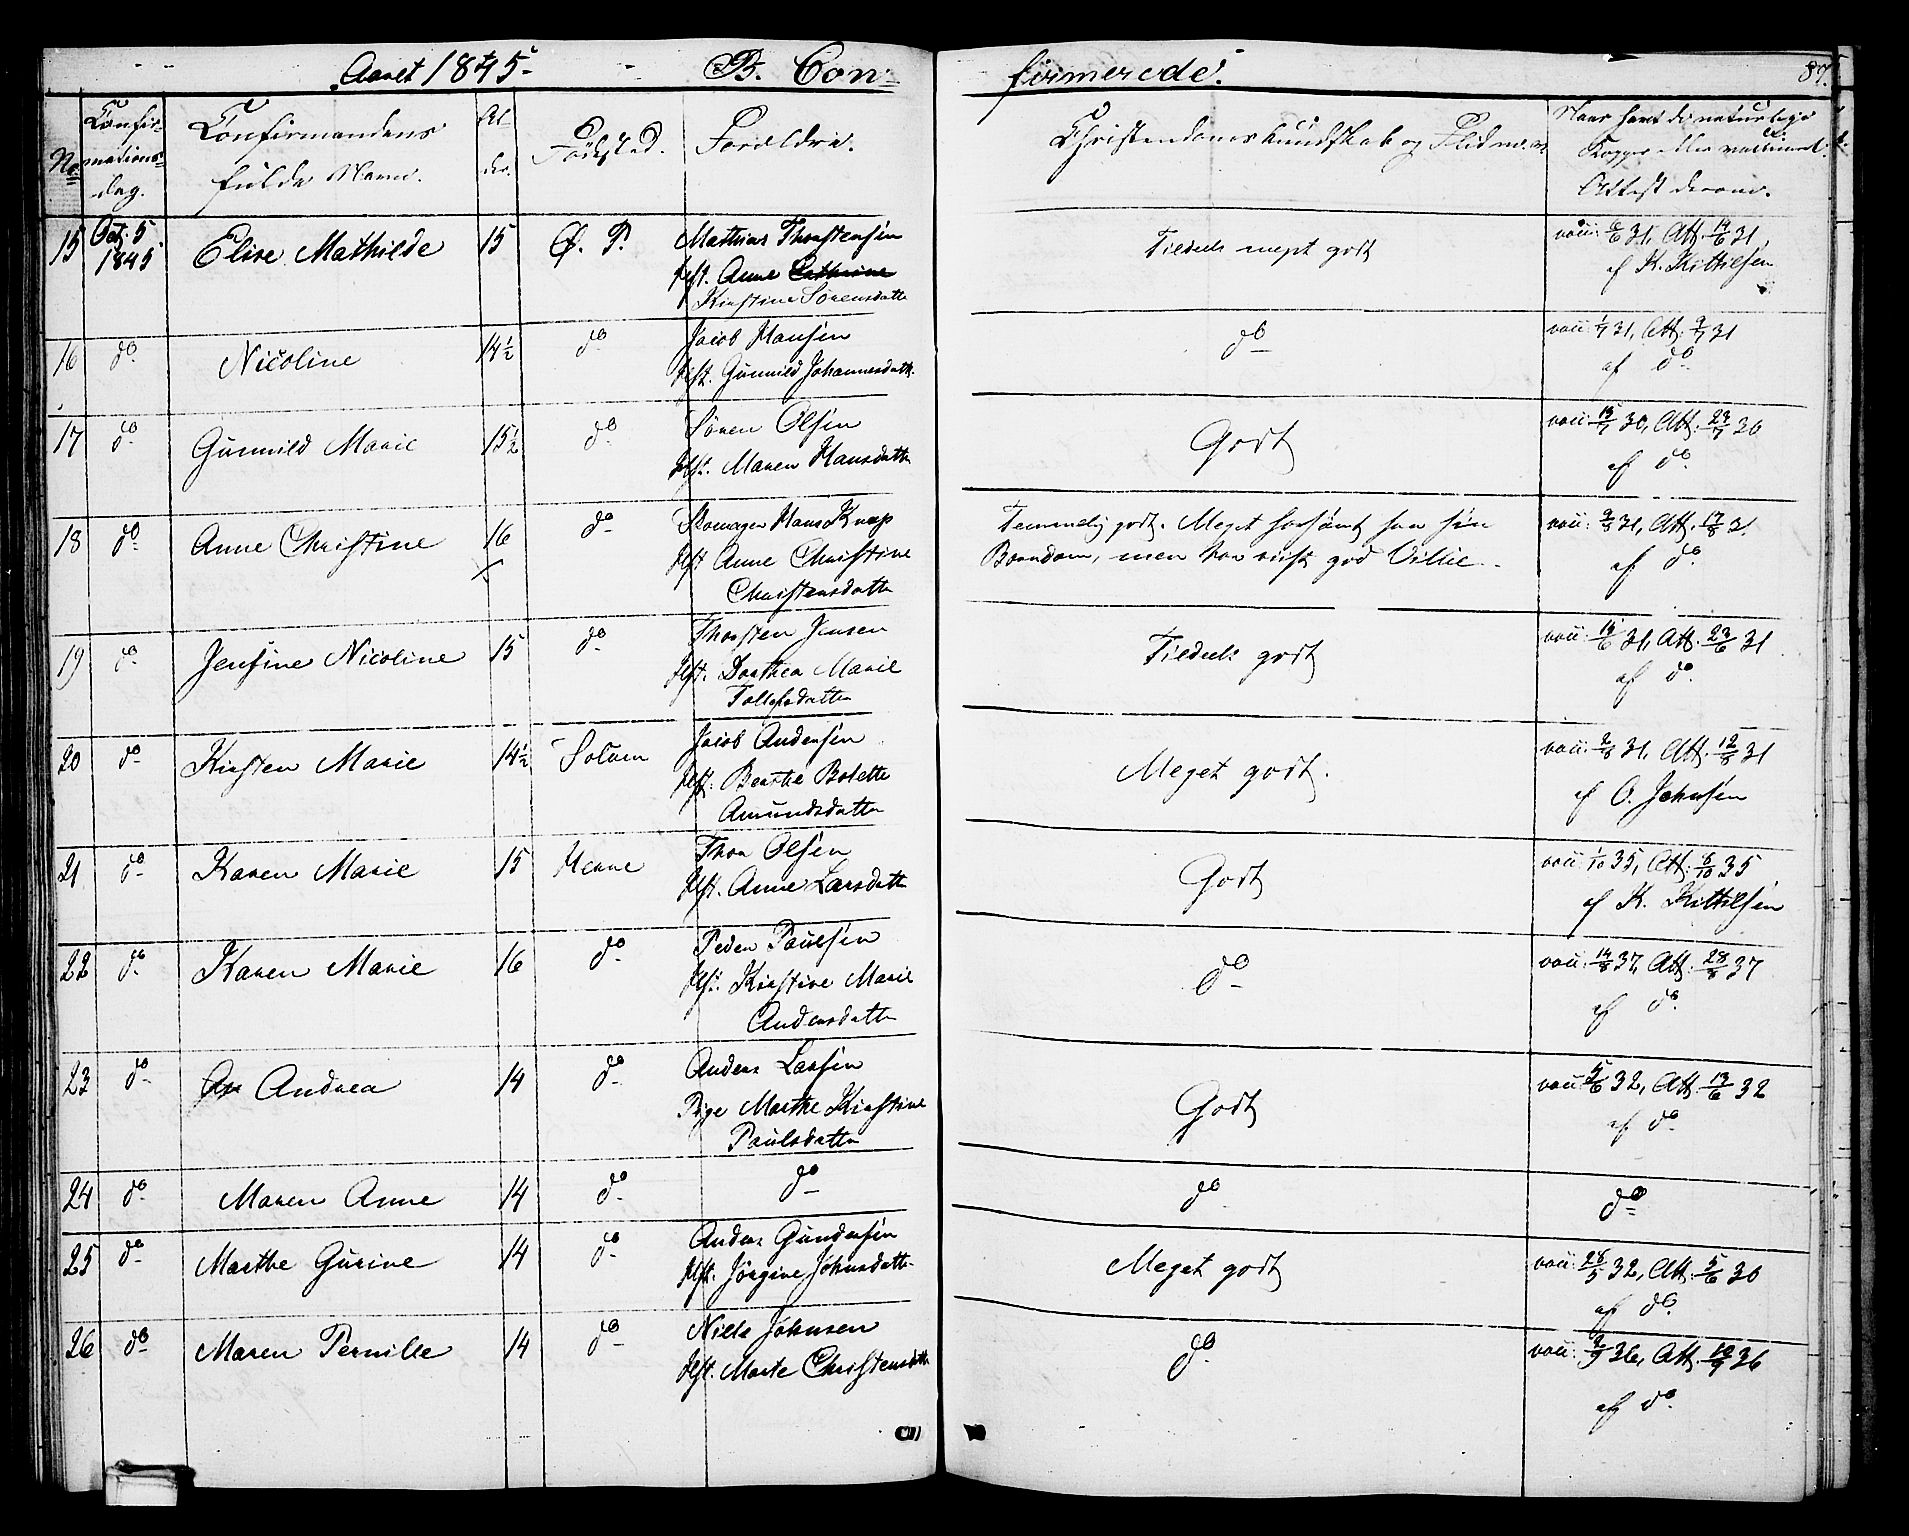 Aaret 1845. B. Con- firmerede. 87.
No Confir- mations- dag. Confirmandens fulde Navn. Al- der. Fødested. Forældre. Christendomskundskab og Flid m.m. Naar havt de naturlige Kopper eller vaccineret. Attest derom.
15 Oct. 5 1845 Elise Mathilde 15 Ø. P. Mathias Thorstensen
Hst. Anne Cathrine
Kirstine Sörensdatter
Tildeels meget godt
vac: 6/6 31, Att. 14/6 31,
af K. Kittilsen
16 do Nicoline 14½ do Jacob Hansen
Hst. Gunnild Johannesdatt.
do
vac: 1/7 31, Att. 9/7 31
af do
17 do Gunnild Marie 15½ do Sören Olsen
Hst. Maren Hansdatter
Godt
vac: 15/7 30, Att. 23/7 30
af do
18 do Anne Christine 16 do Hans Knap
Hst Anne Christine
Christensdatter
Temmelig godt. Meget forsömt fra sin
Barndom, men har viist god Villie.
vac: 9/8 31, Att. 17/8 31
af do
19 do Jensine Nicoline 15 do Thorsten Jensen
Hst. Dorthea Marie
Tollefsdatter
Tildeels godt
vac: 15/6 31, Att. 23/6 31
af do
20 do Kirsten Marie 14½ Solum Jacob Andersen
Hst. Berthe Bolette
Amundsdatter
Meget godt.
vac: 2/8 31, Att. 12/8 31
af O. Johnsen
21 do Karen Marie 15 Herre Thor Olsen
Hst. Anne Larsdatter
Godt
vac: 1/10 35, Att. 8/10 35
af K. Kittilsen
22 do Karen Marie 16 do Peder Paulsen
Hst. Kirstine Marie
Andersdatter
do
vac: 14/8 37, Att. 28/8 37
af do
23 do Andrea 14 do Anders Larsen
Pige Marthe Kirstine
Paulsdatter
Godt
vac: 5/6 32, Att. 13/6 32
af do
24 do Maren Anne 14 do do do do
25 do Marthe Gurine 14 do Anders Gundersen
Hst. Jörgine Johnsdatter
Meget godt
vac: 28/5 32, Att. 5/6 30
af do
26 do Maren Pernille 14 do Niels Johnsen
Hst. Marte Christensdatter
do
vac: 2/9 36, Att. 10/9 36
af do